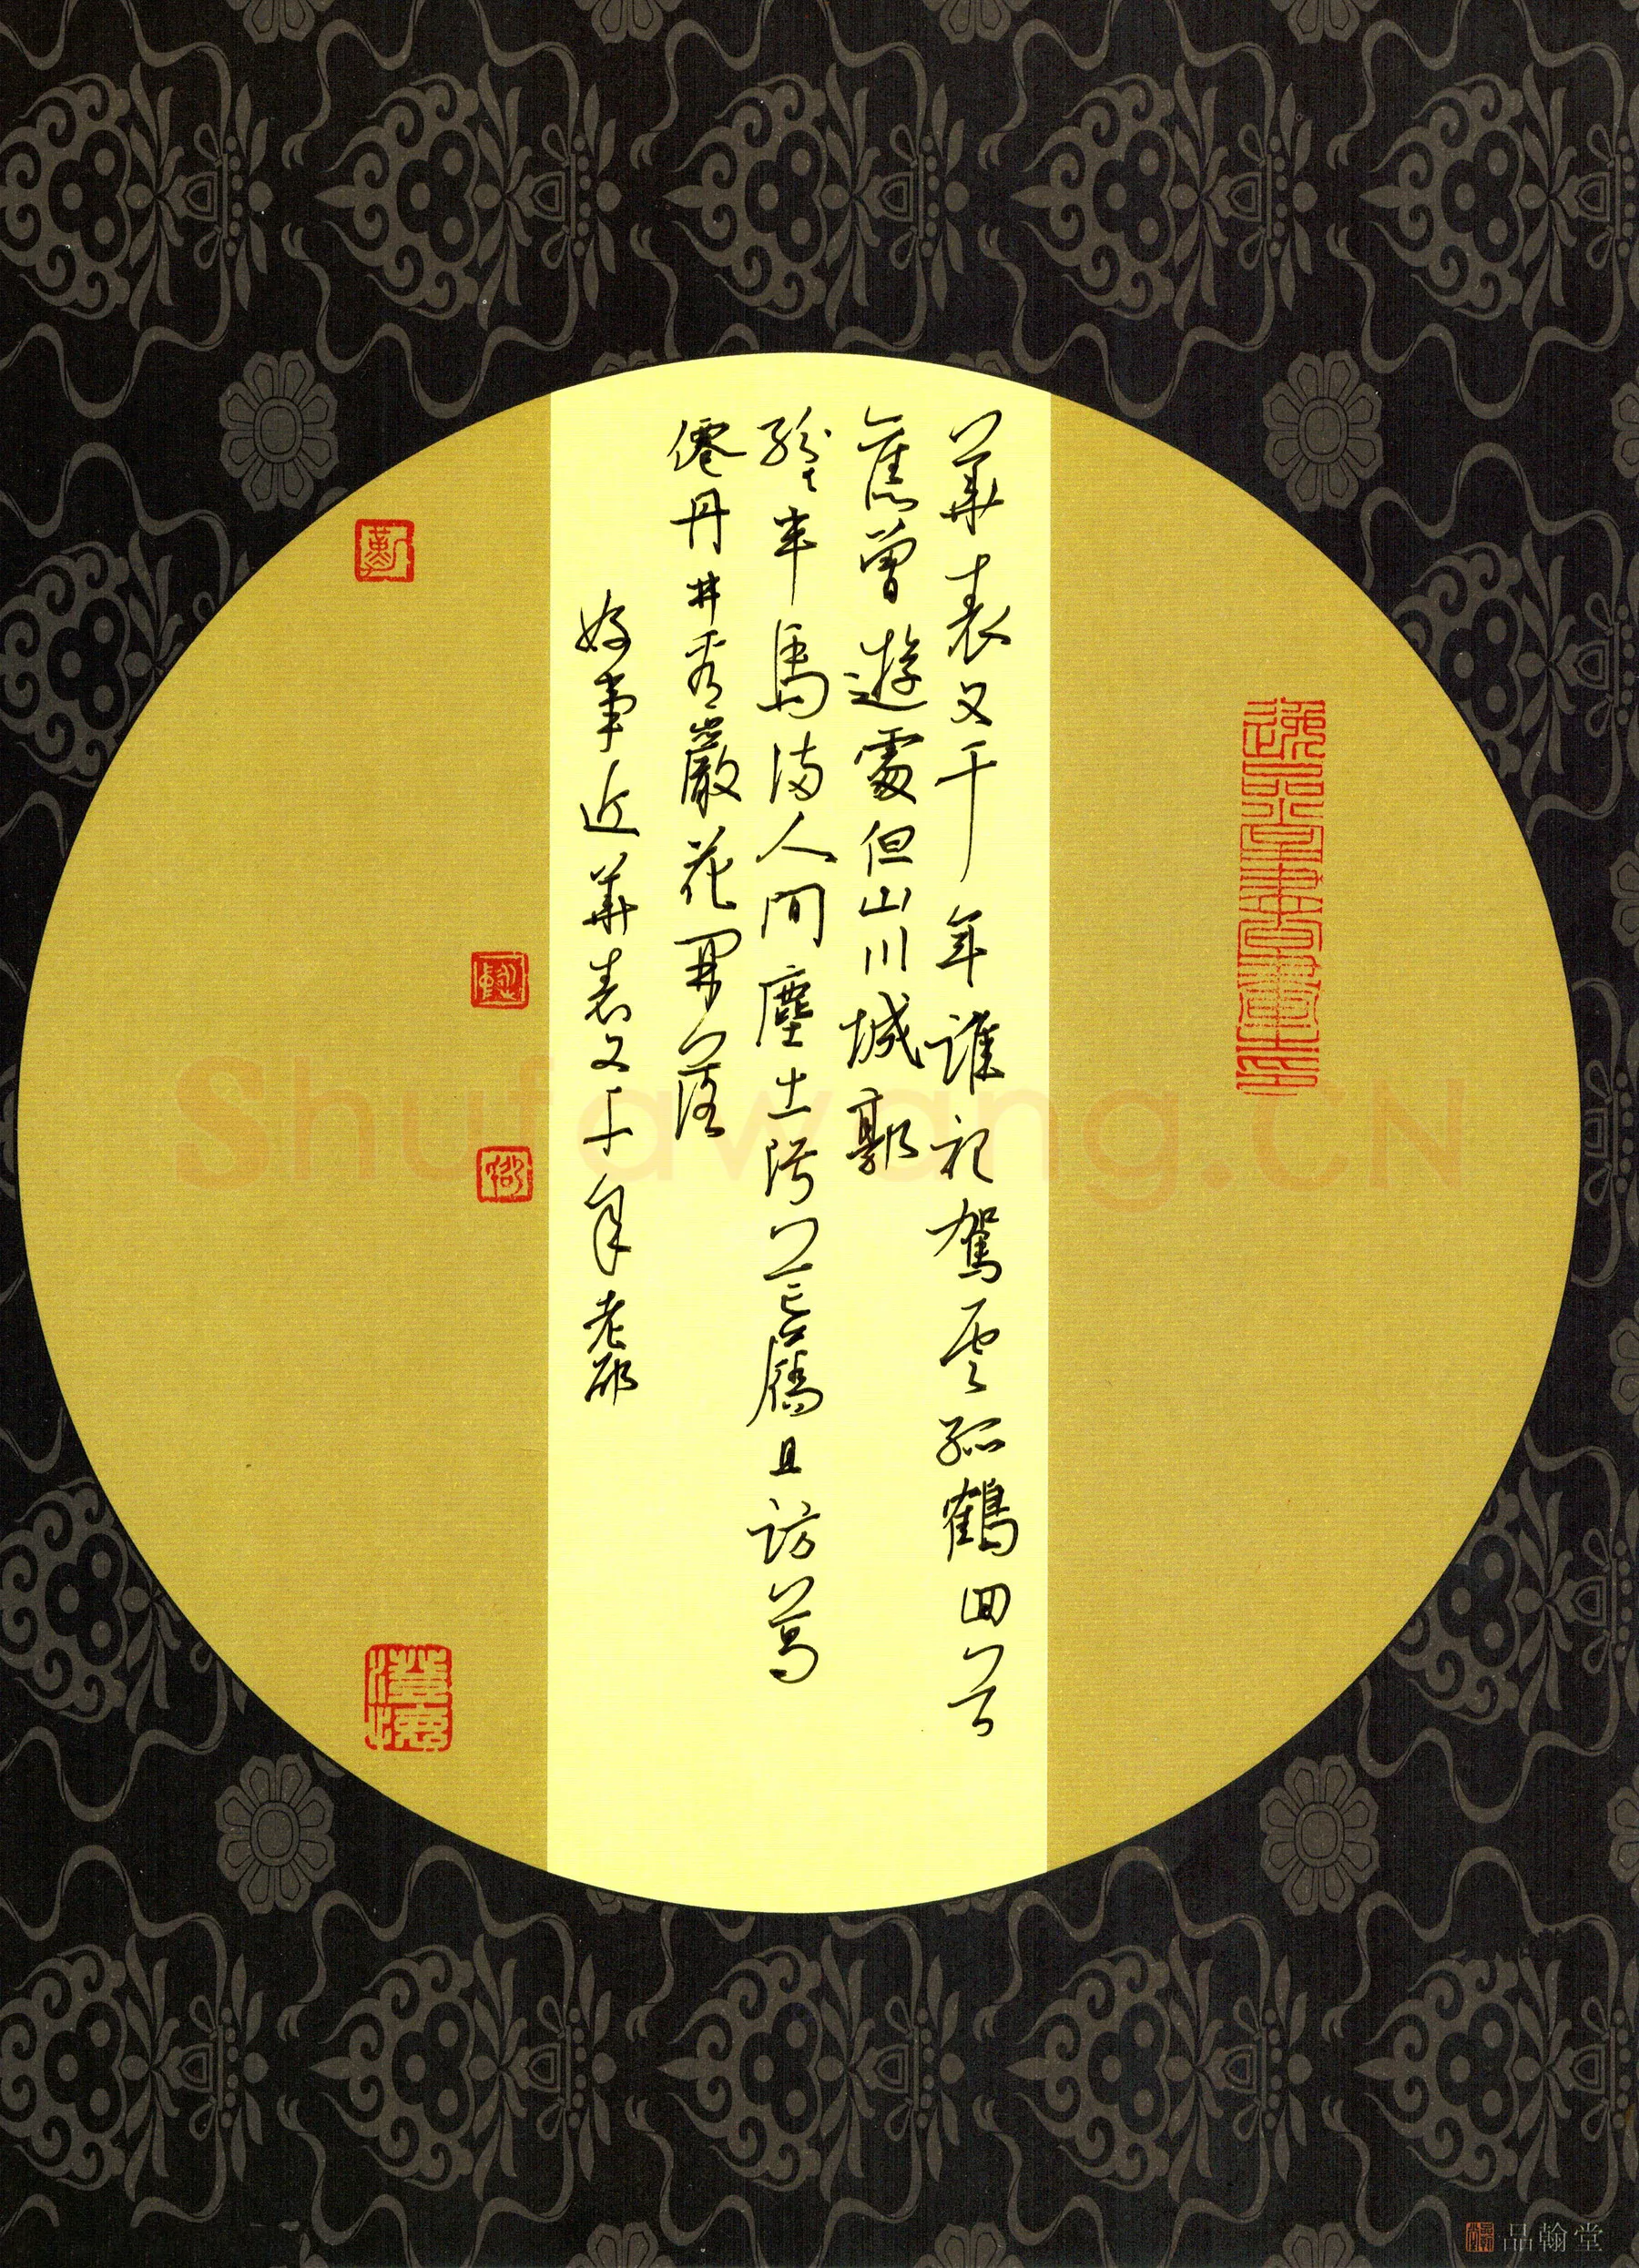 華表又千年誰記駕雲孤鶴回首
舊曾遊處但山川城郭
紛〻車馬滿人間塵土污芒屩且訪葛
僊丹井看巖花開落
好事近華表又千年 老邵
Shufawang.CN
品翰堂